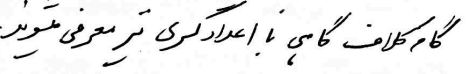 گام کلاف گاهی با اعداد کسری نیز معرفی میشوند.